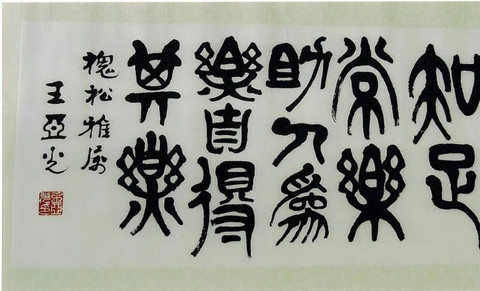 知足
常樂
助人為
樂自得
其樂
槐松雅属
王亞光